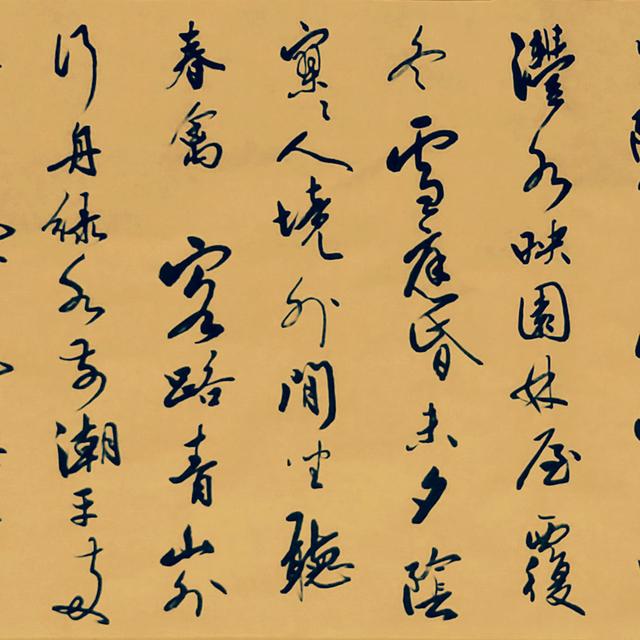 灃水映園林屋覆
冬雪庭昏未夕陰
寥〻人境外間坐聽
春禽 客路青山外
行舟綠水前潮平